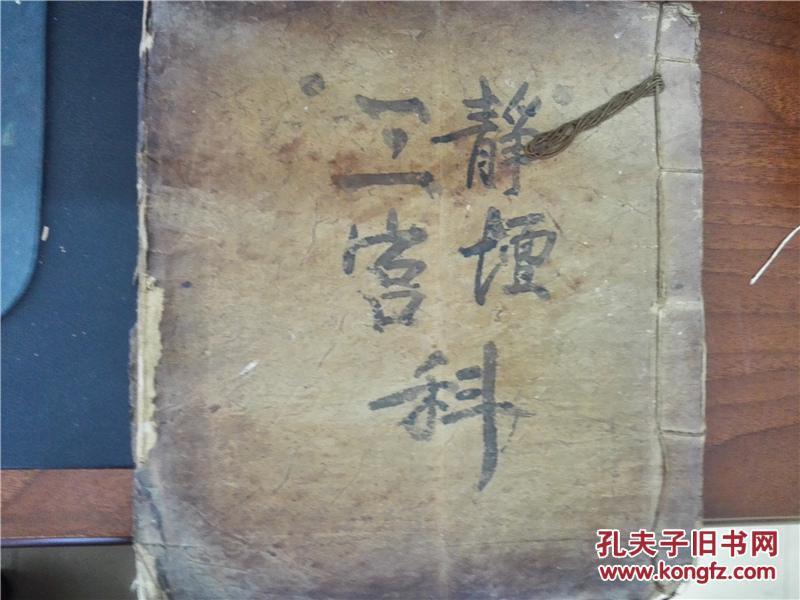 靜壇
三宮
科
孔夫子旧书网
www.kongfz.com